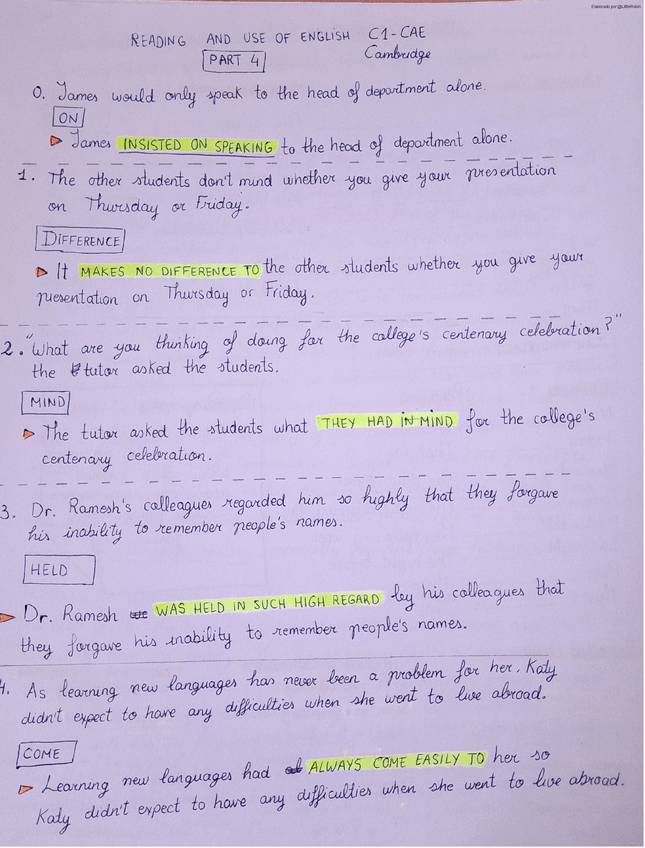 Elaborado por:@LittleRobin
READING AND USE OF ENGLISH C1-CAE
Cambridge
PART 4
0. James would only speak to the head of department alone.
ON
James INSISTED ON SPEAKING to the head of department alone.
1. The other students don't mind whether you give your presentation
on Thursday or Friday.
DIFFERENCE
It MAKES NO DIFFERENCE TO the other students whether you give your
presentation on Thursday or Friday.
2. "What are you thinking of doing for the college's centenary celebration?"
the tutor asked the students.
MIND
The tutor asked the students what THEY HAD IN MIND for the college's
centenary celebration.
3. Dr. Ramesh's colleagues regarded him so highly that they forgave
his inability to remember people's names.
HELD
Dr. Ramesh WAS HELD IN SUCH HIGH REGARD by his colleagues that
they forgave his inability to remember people's names.
4. As learning new languages has never been a problem for her. Katy
didn't expect to have any difficulties when she went to live abroad.
COME
Learning new languages had ALWAYS COME EASILY TO her so
Katy didn't expect to have any difficulties when she went to live abroad.